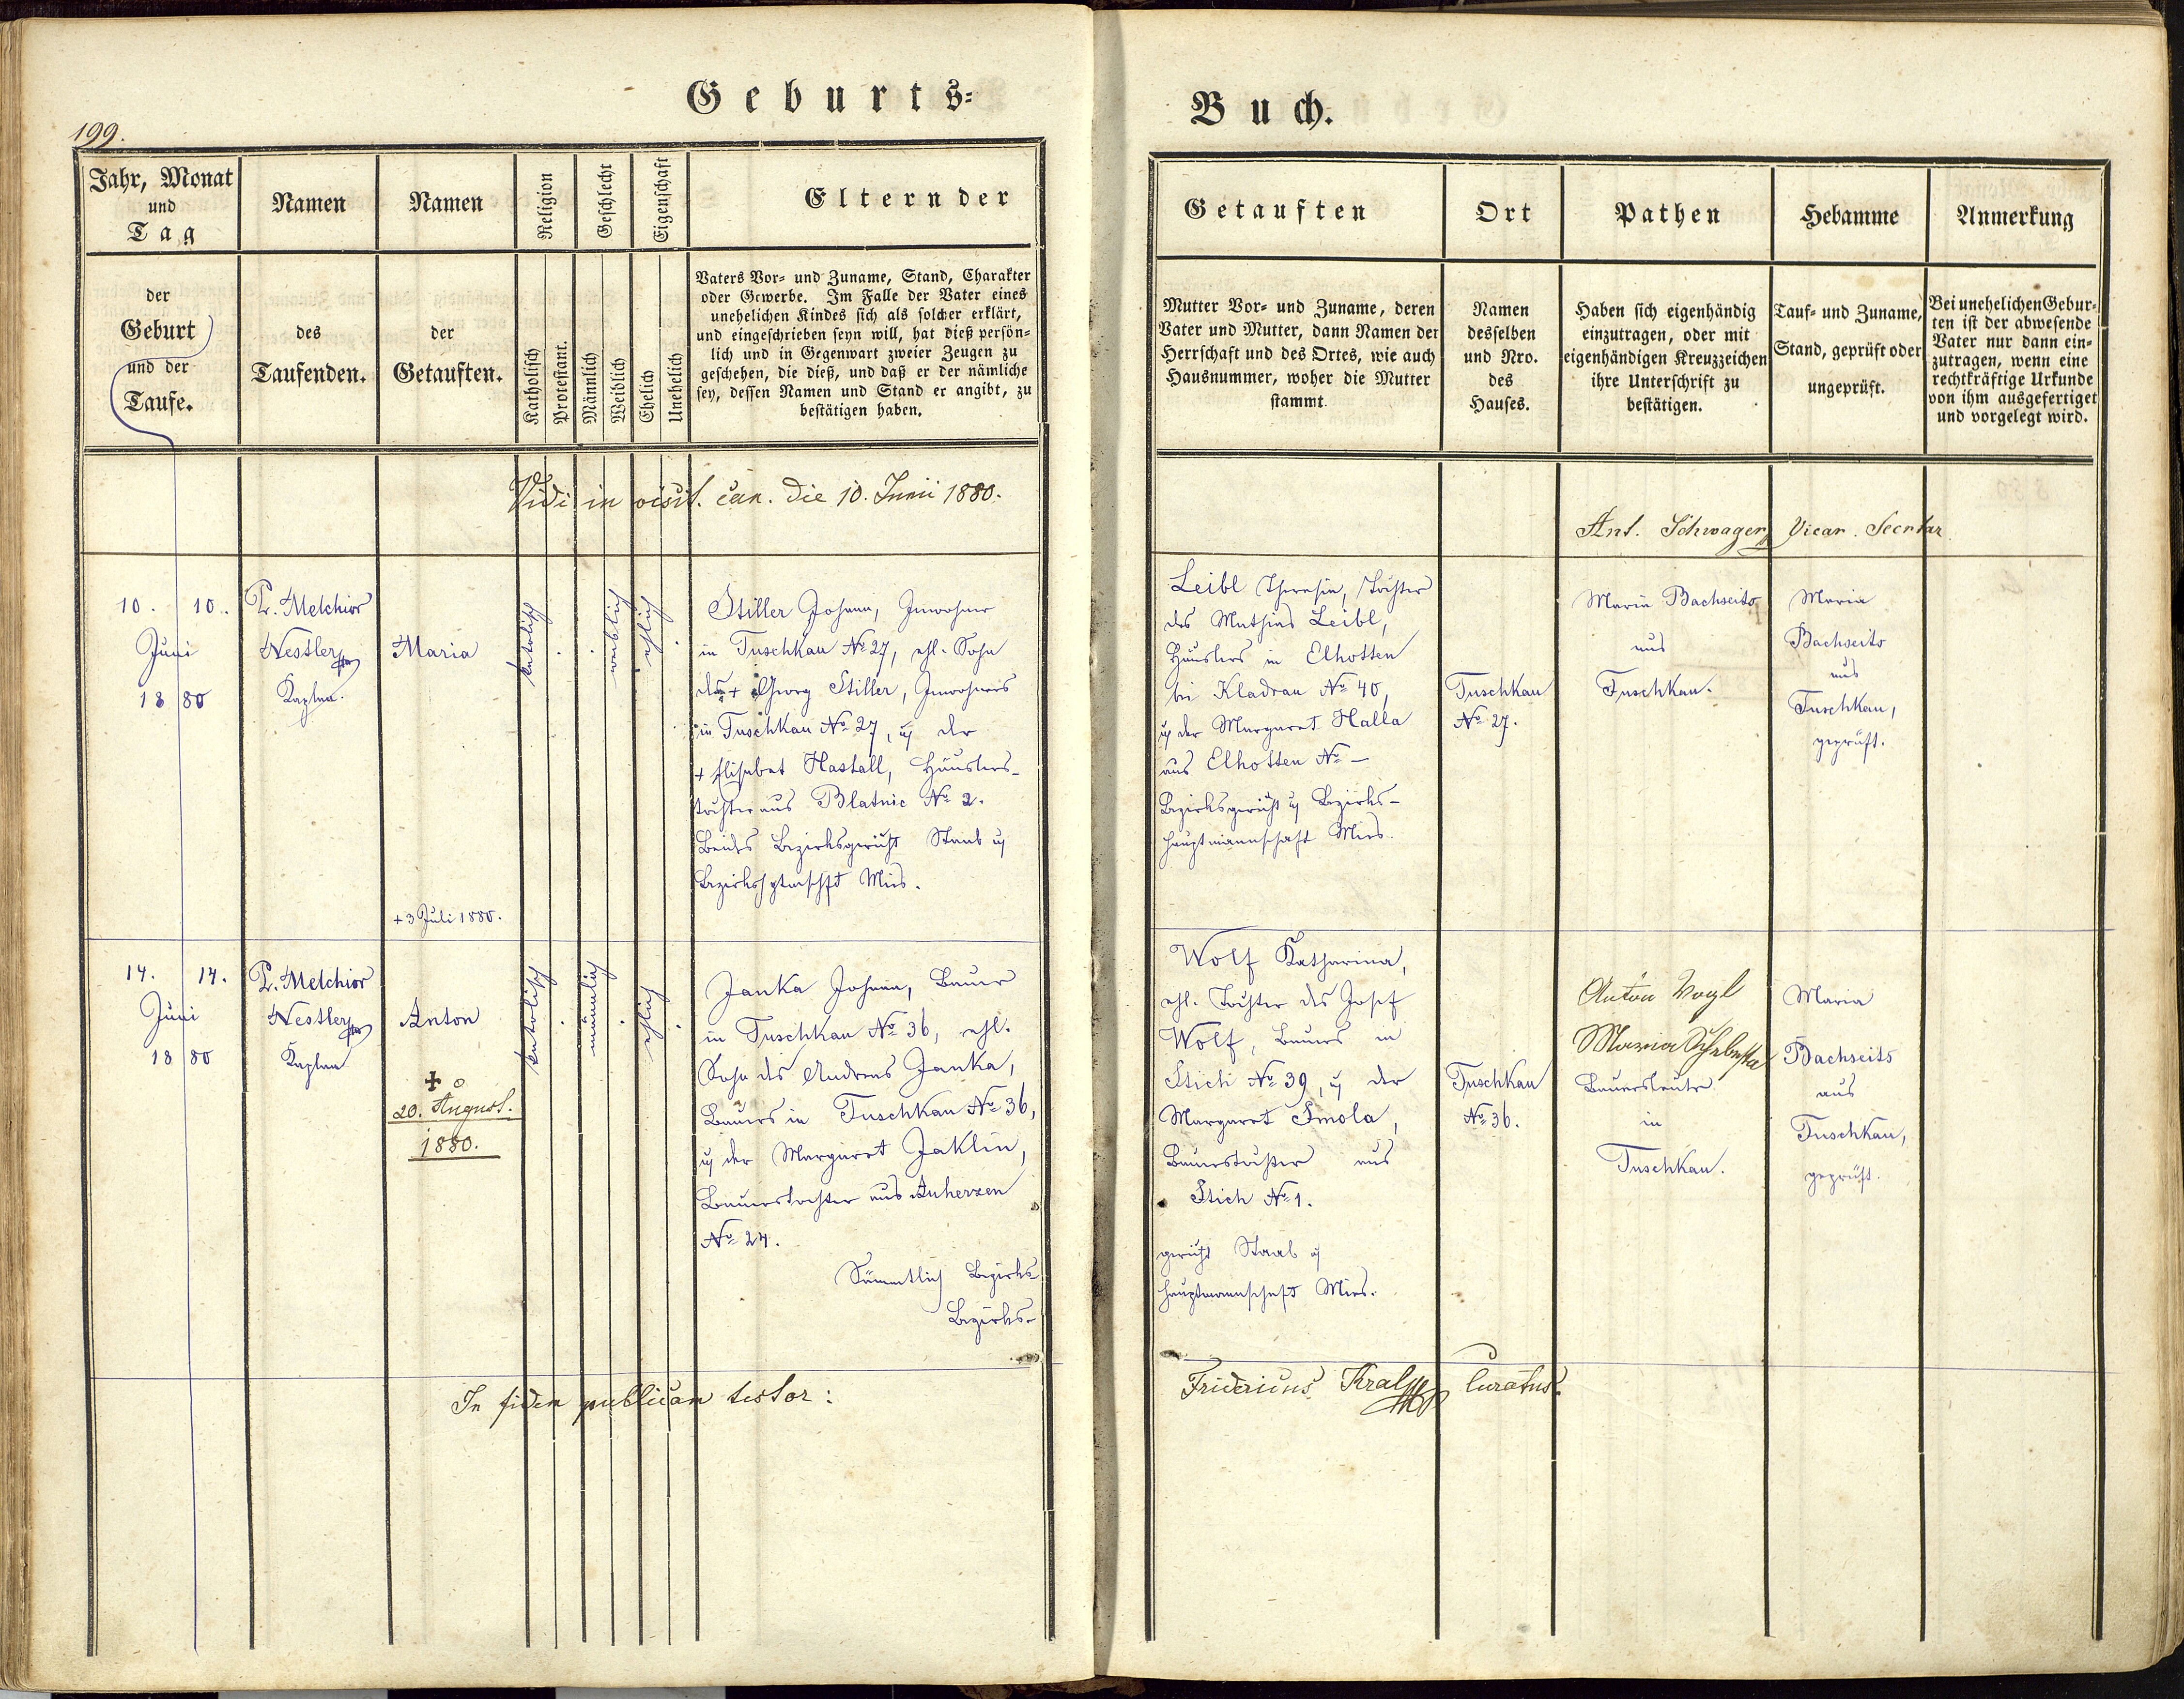 Geburts=
Buch.
199.
Jahr, Monat
und
Tag
Namen
Namen
Religion
Geschlecht
Eigenschaft
Eltern der
Getauften
Ort
Pathen
Hebamme
Anmerkung
der
Geburt
und der
Taufe.
des
Taufenden.
der
Getauften.
Katholisch
Protestant.
Männlich
Weiblich
Ehelich
Unehelich
Vaters Vor= und Zuname, Stand, Charakter
oder Gewerbe. Im Falle der Vater eines
unehelichen Kindes sich als solcher erklärt,
und eingeschrieben seyn will, hat dieß persön=
lich und in Gegenwart zweier Zeugen zu
geschehen, die dieß, und daß er der nämliche
sey, dessen Namen und Stand er angibt, zu
bestätigen haben.
Mutter Vor= und Zuname, deren
Vater und Mutter, dann Namen der
Herrschaft und des Ortes, wie auch
Hausnummer, woher die Mutter
stammt.
Namen
desselben
und Nro.
des
Hauses.
Haben sich eigenhändig
einzutragen, oder mit
eigenhändigen Kreuzzeichen
ihre Unterschrift zu
bestätigen.
Tauf= und Zuname,
Stand, geprüft oder
ungeprüft.
Bei unehelichen Gebur=
ten ist der abwesende
Vater nur dann ein=
zutragen, wenn eine
rechtkräftige Urkunde
von ihm ausgefertiget
und vorgelegt wird.
Vidi in visit. can. die 10. Junii 1880.
Ant. Schwager Vicar. Secretar
10. 10.
Juni
18 80
P. Melchior
Nestler
Kaplan.
Maria
+ 3 Juli 1880.
katolisch
weiblich
ehlich
Stiller Johann, Inwohner
in Tuschkau No 27, ehl. Sohn
des + Georg Stiller, Inwohners
in Tuschkau No 27, u der
+ Elisabet Hastall, Häuslers-
tochter aus Blatnic No 2.
Beides Bezirksgericht Staab u
Bezirkshptmschft Mies.
Leibl Theresia, Tochter
des Mathias Leibl,
Häuslers in Elhotten
bei Kladrau No 40,
u der Margaret Halla
aus Elhotten No –
Bezirksgericht u Bezirks-
hauptmannschaft Mies.
Tuschkau
No 27.
Maria Bachseits
aus
Tuschkau.
Maria
Bachseits
aus
Tuschkau,
geprüft.
14. 14.
Juni
18 80
P. Melchior
Nestler
Kaplan
Anton
+
20. August.
1880.
katolisch
männlich
ehlich
Janka Johann, Bauer
in Tuschkau No 36, ehl.
Sohn des Andreas Janka,
Bauers in Tuschkau No 36,
u der Margaret Jaklin,
Bauerstochter aus Auherzen
No 24.
Sämmtlich Bezirks-
Bezirks-
Wolf Katharina,
ehl. Tochter des Josef
Wolf, Bauers in
Stich No 39, u der
Margaret Smola,
Bauerstochter aus
Stich No 1.
gericht Staab u
hauptmannschaft Mies.
Tuschkau
No 36.
Anton Vogl
Maria
Bauersleute
in
Tuschkau.
Maria
Bachseits
aus
Tuschkau,
geprüft.
In fidem publicam testor:
Fridericus Kral Curatus.